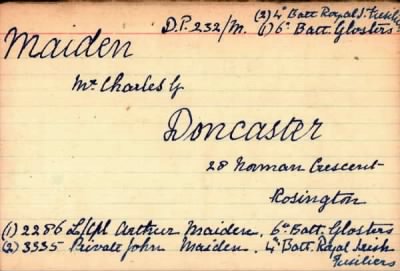 D.P. 232/M. (2) 4° Batt Royal I. Fusiliers
(1) 6° Batt. Glosters
Maiden
Mr Charles G
Doncaster
28 Norman Crescent
Rosington
(1) 2286 L/Cpl Arthur Maiden. 6° Batt. Glosters
(2) 3335 Private John Maiden. 4° Batt. Royal Irish
Fusiliers